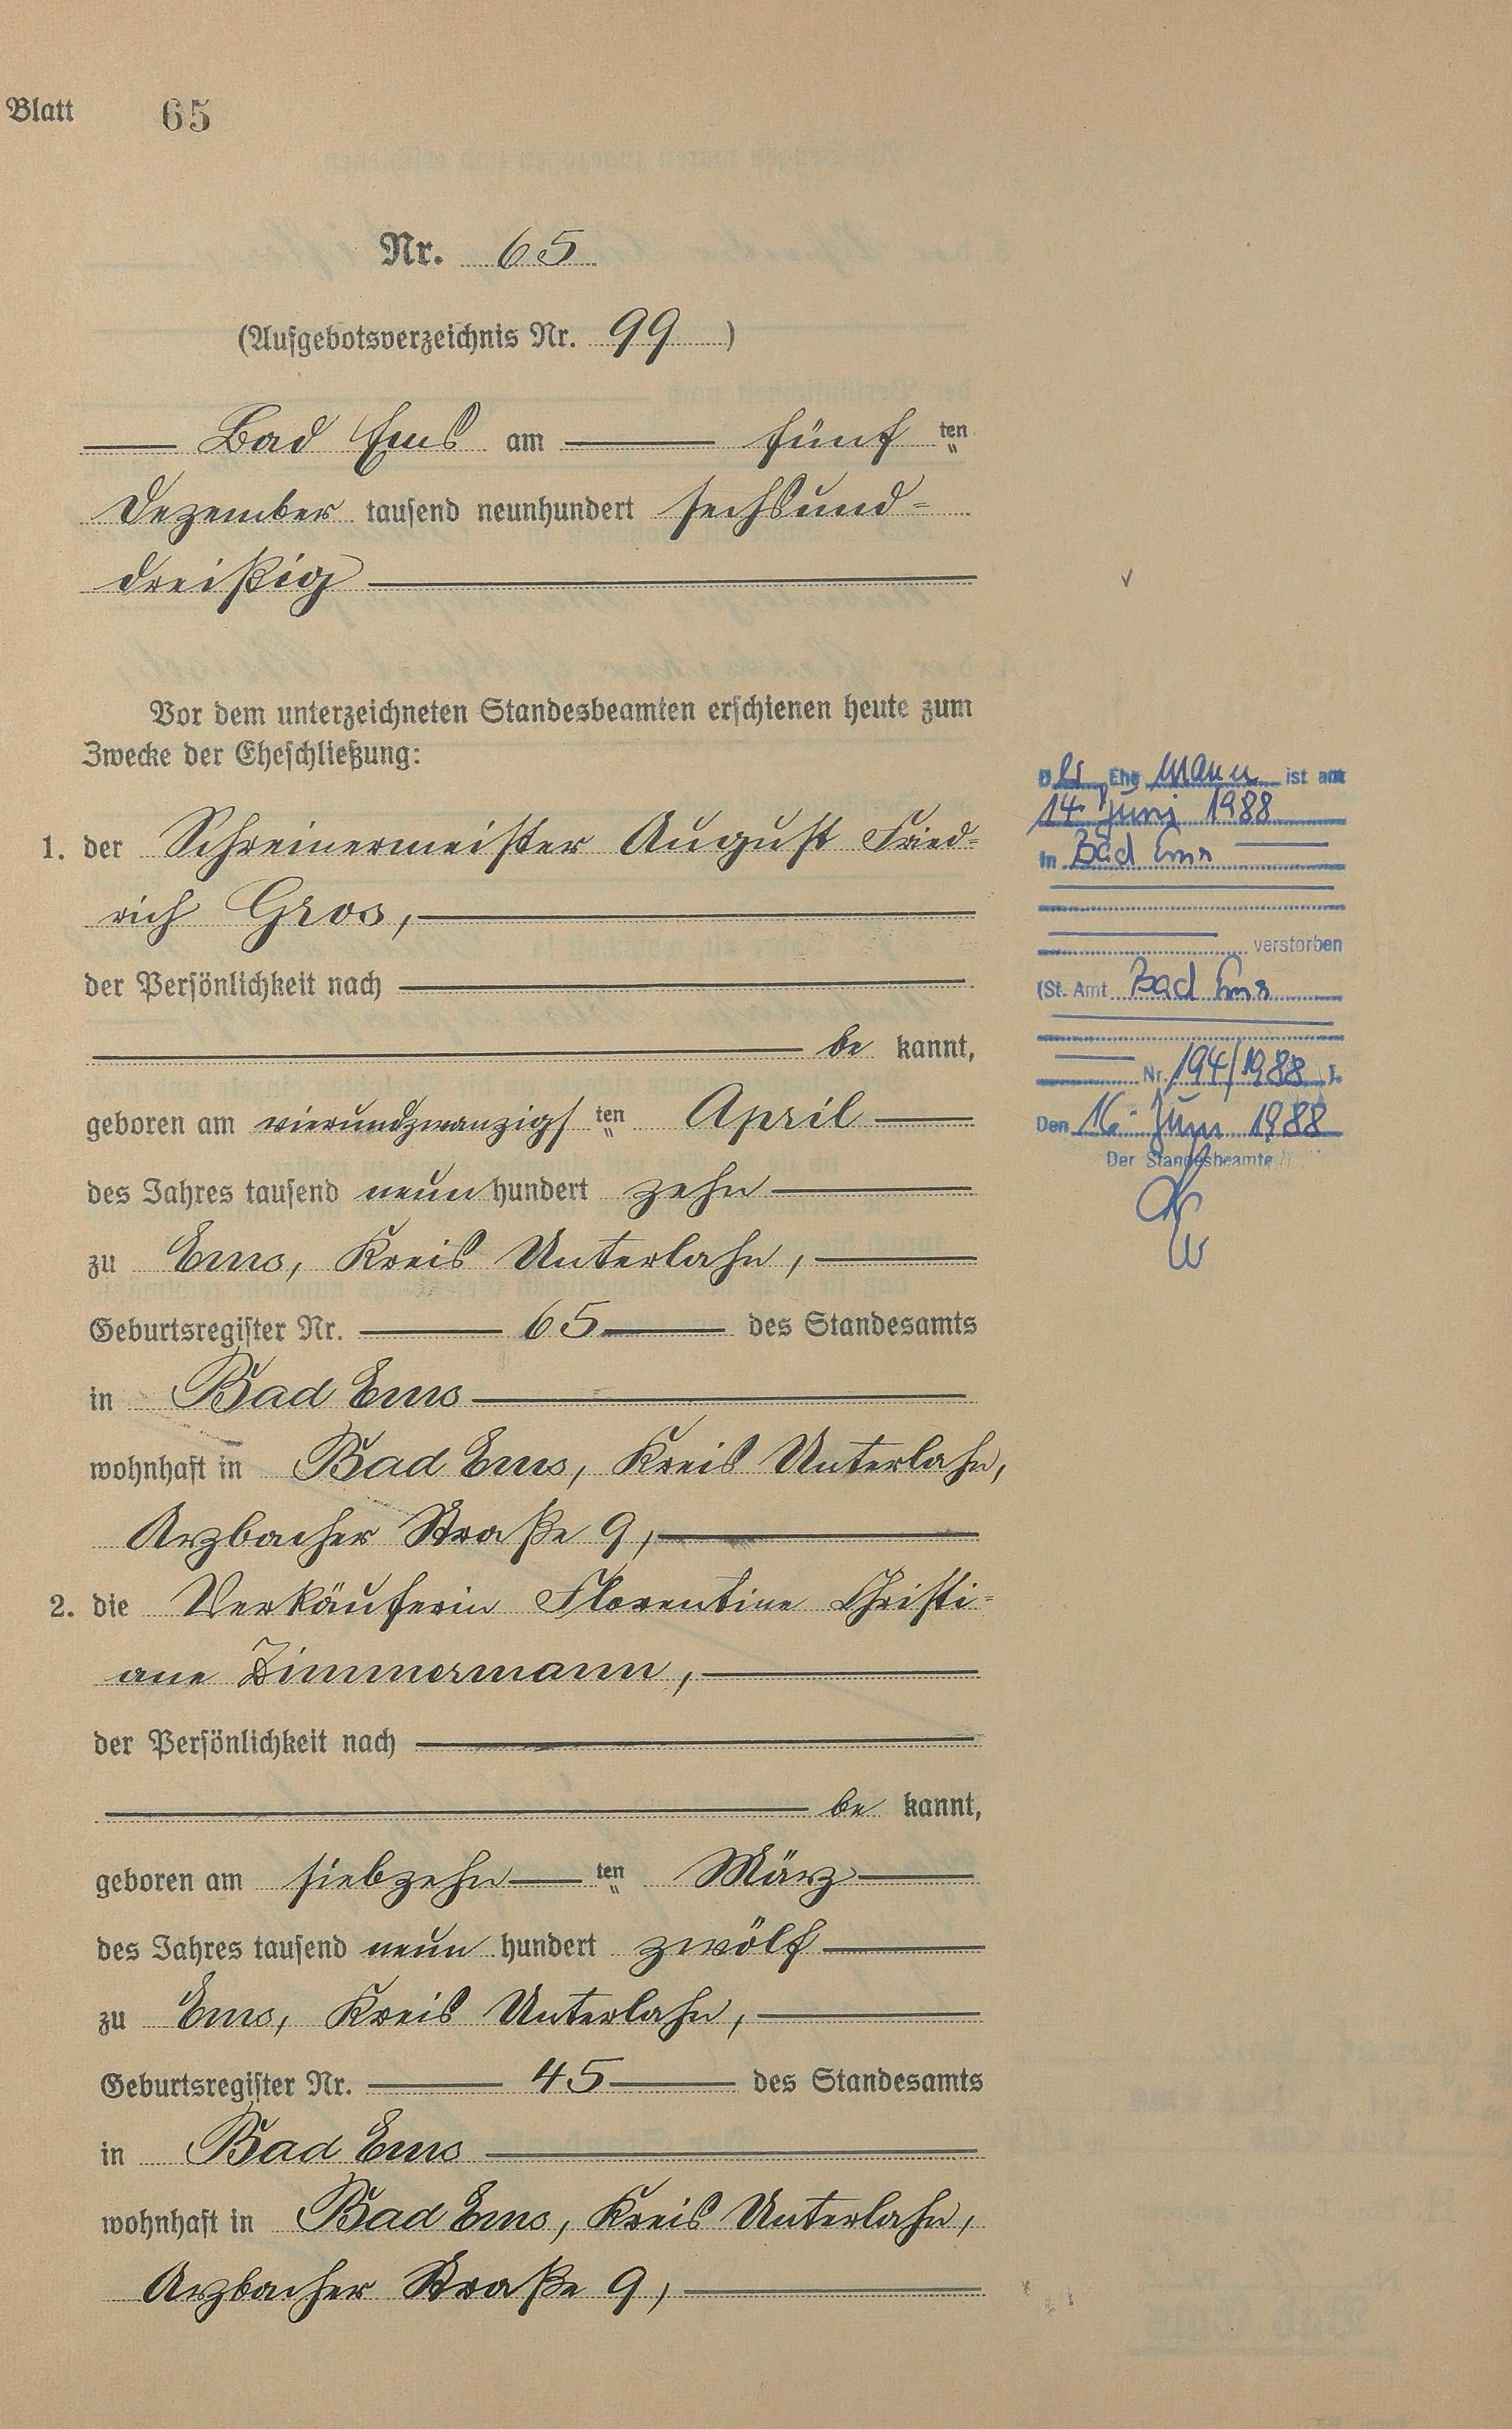 Blatt 65
Nr. 65
(Aufgebotsverzeichnis Nr. 99)
Bad Ems am fünf ten
Dezember tausend neunhundert sechsund-
dreißig
Vor dem unterzeichneten Standesbeamten erschienen heute zum
Zwecke der Eheschließung:
1. der Schreinermeister August Fried-
rich Gros,
der Persönlichkeit nach
be kannt,
geboren am vierundzwanzigs ten April
des Jahres tausend neun hundert zehn
zu Ems, Kreis Unterlahn,
Geburtsregister Nr. 65 des Standesamts
in Bad Ems
wohnhaft in Bad Ems, Kreis Unterlahn,
Arzbacher Straße 9,
2. die Verkäuferin Florentine Christi-
ane Zimmermann,
der Persönlichkeit nach
be kannt,
geboren am siebzehn ten März
des Jahres tausend neun hundert zwölf
zu Ems, Kreis Unterlahn,
Geburtsregister Nr. 45 des Standesamts
in Bad Ems
wohnhaft in Bad Ems, Kreis Unterlahn,
Arzbacher Straße 9,
Der Ehemann ist am
14. Juni 1988
in Bad Ems
verstorben
(St. Amt Bad Ems
Nr. 194/1988 ).
Den 16. Juni 1988
Der Standesbeamte